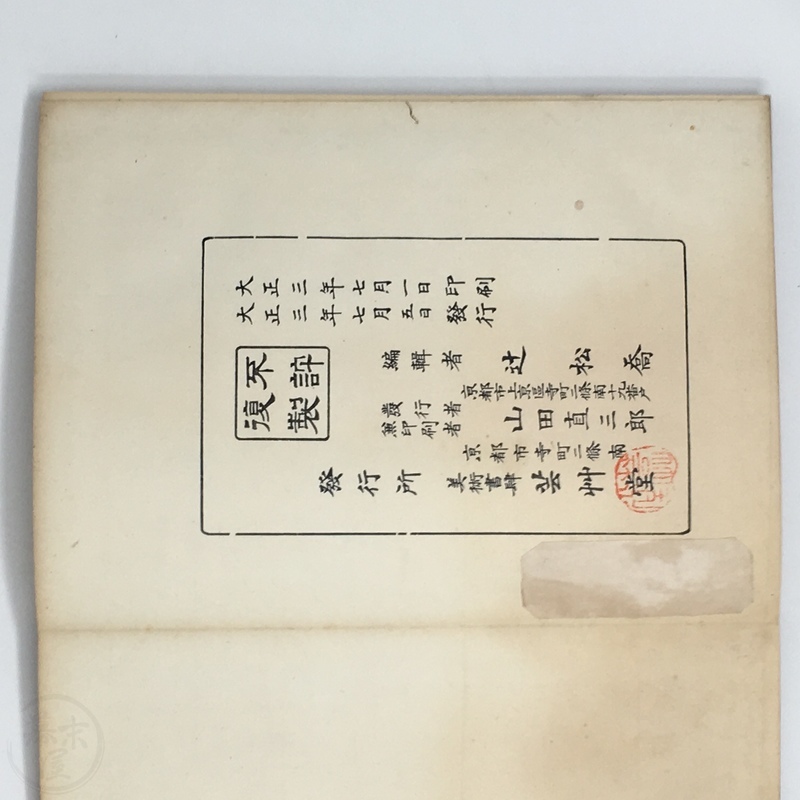 大正三年七月一日印刷
大正三年七月五日發行
不許
復製
編輯者 辻松喬
京都市上京區寺町二條南十九番戸
發行者
兼印刷者
山田直三郎
京都市寺町二條南
發行所 美術書肆 芸艸堂